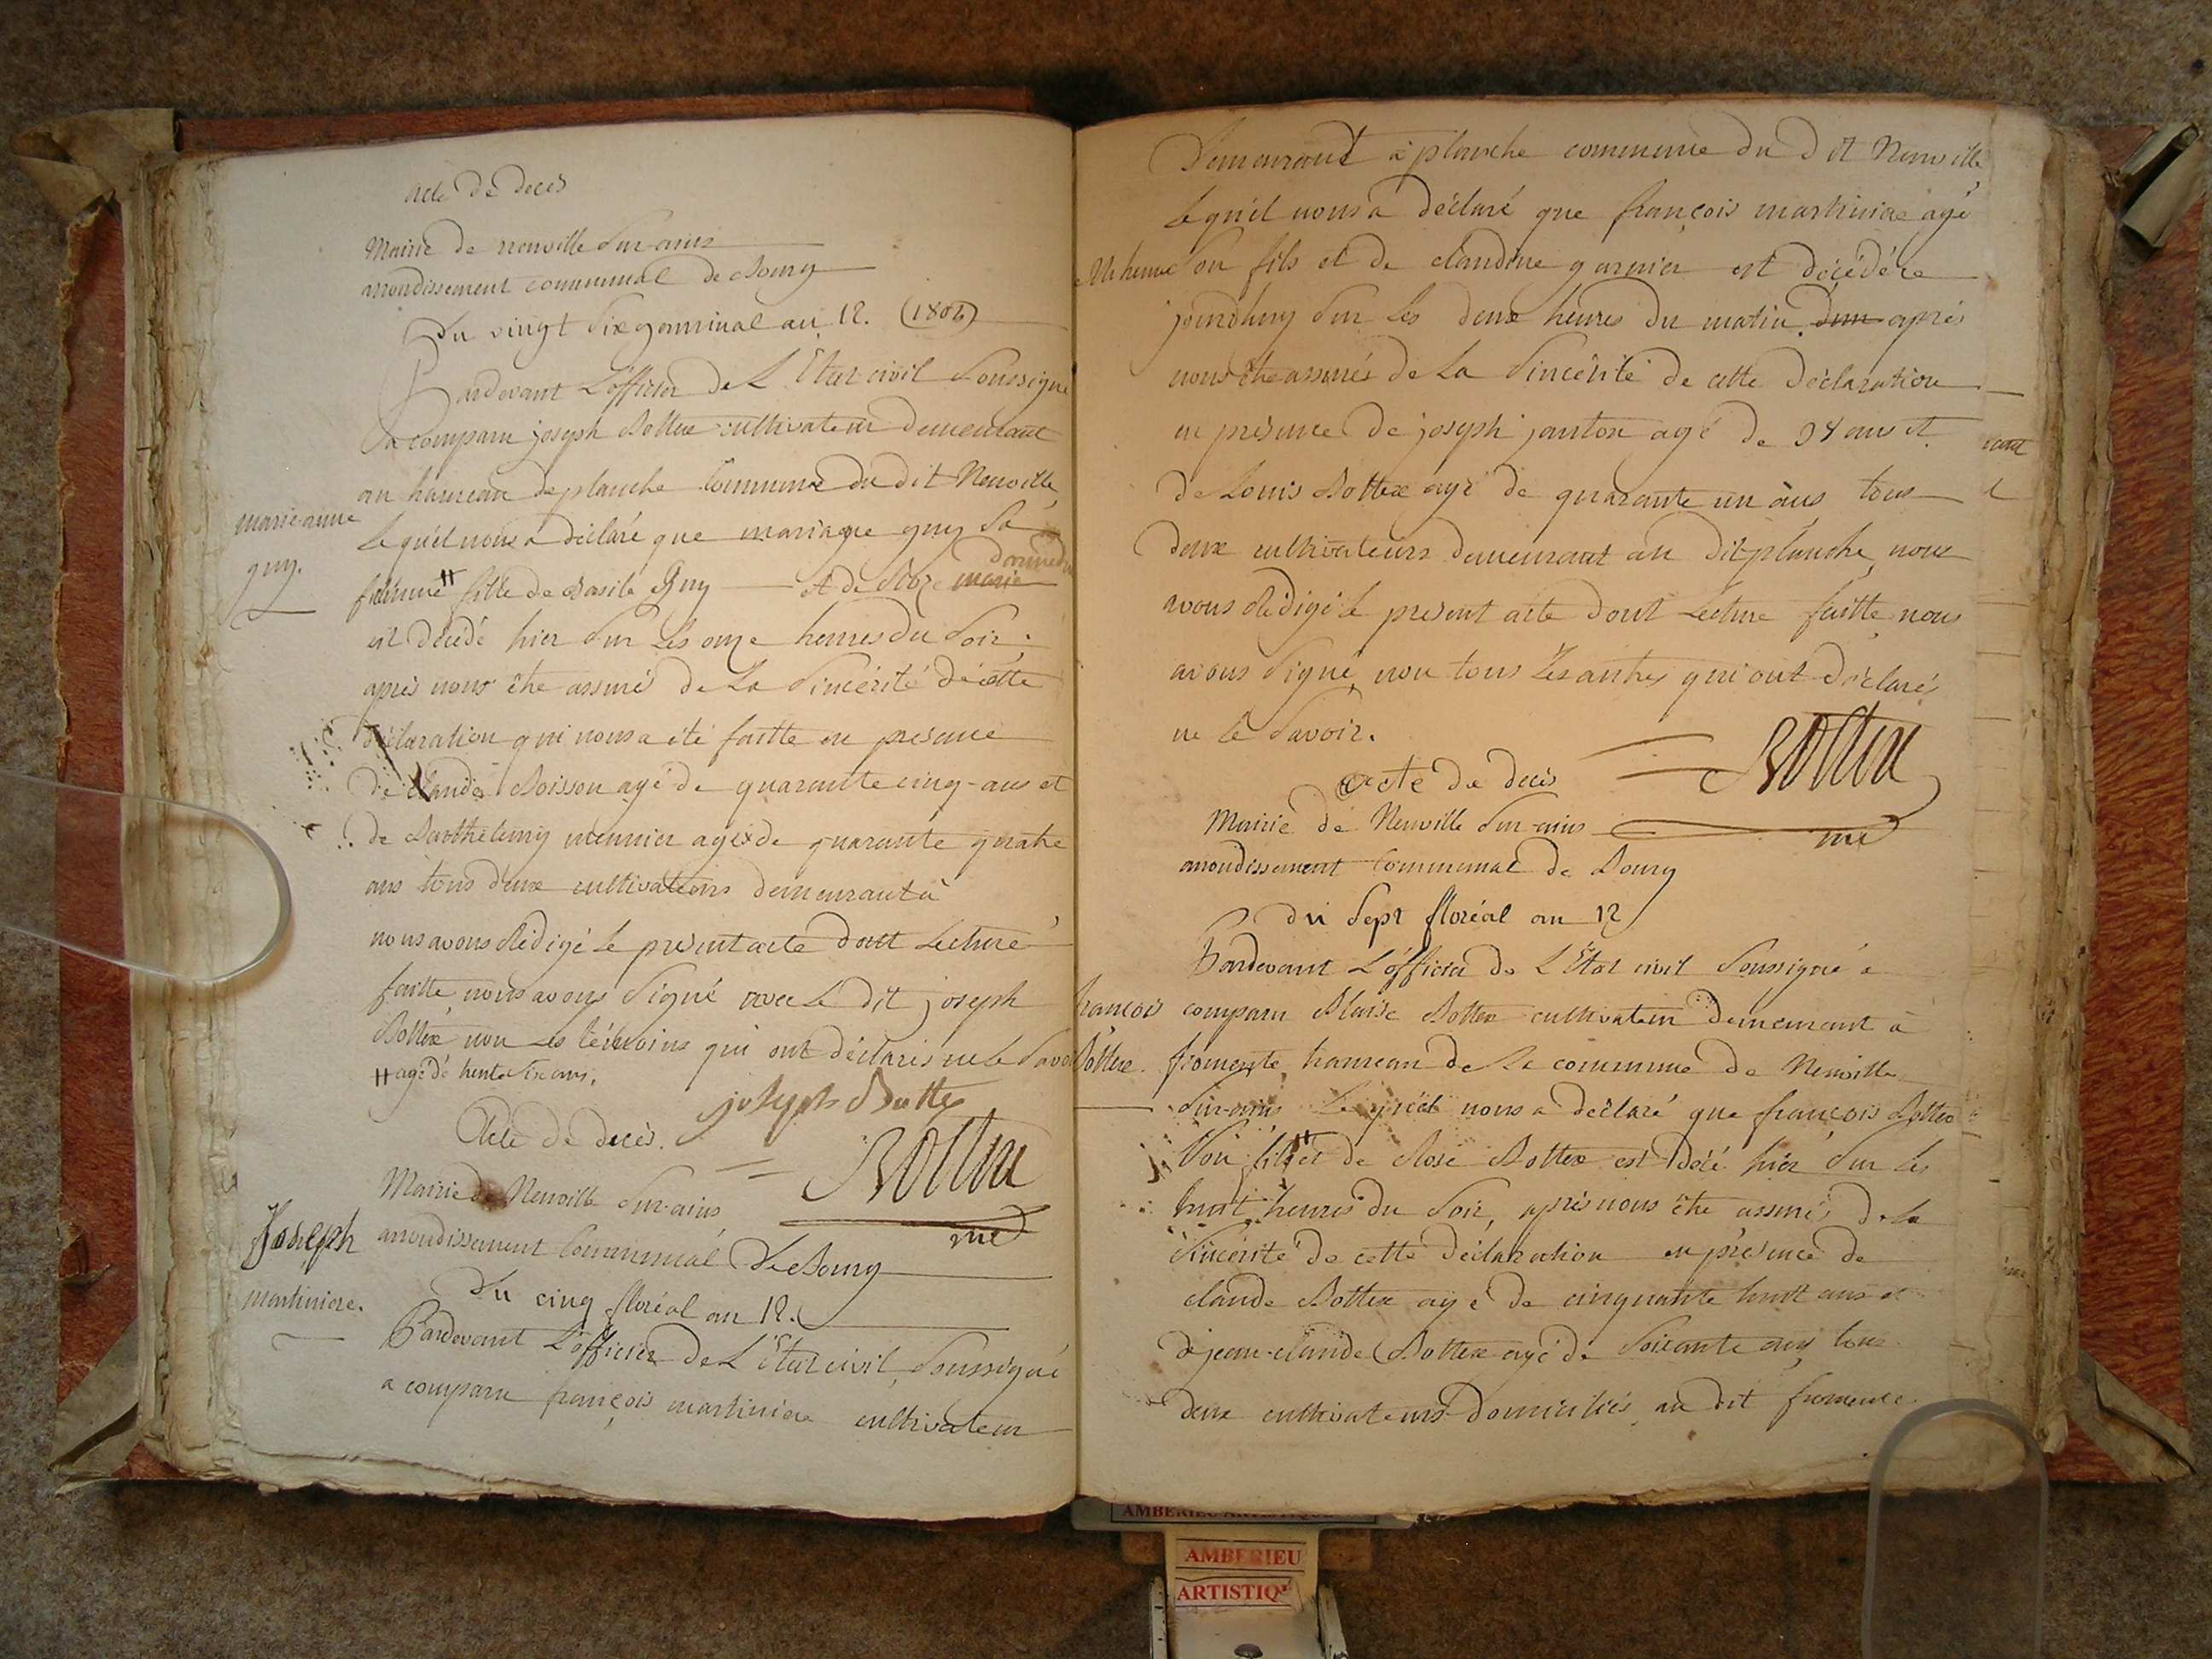 acte de deces
Mairie de neuville sur-ains
arrondissement communal de Bourg
Du vingt six germinal an 12. (1804)
Pardevant L'officier de L'Etat civil soussigné
a comparu joseph Bottex cultivateur demeurant
au hameau de planche Commune du dit Neuville
marie-anne
guy.
lequel nous a déclaré que mariaqne guy sa
femme # fille de Basile Guy et de Roze marie
donnedu
est décédé hier sur les onze heures du soir.
après nous être assuré de la sincérité de cette
déclaration qui nous a été faitte en présence
de claude Boisson agé de quarante cinq-ans et
de Barthelemy meunier agé de quarante quatre
ans tous deux cultivateurs demeurant à
nous avons Rédigé le présent acte dont Lecture
faitte, nous avons signé avec le dit joseph
Bottex non les témoins qui ont déclarés ne le savoir
# agé de trente six ans.
joseph Botte
Acte de decès.
Bottex
me
Mairie de Neuville sur-ains
arrondissement Communal de Bourg
Du cinq floréal an 12.
Joseph
martiniere.
Pardevant L'officier de L'Etat civil, soussigné
a comparu françois martiniere cultivateur
Demeurant à planche commune du dit Neuville
lequel nous a déclaré que françois martiniere agé
son fils et de claudine garnier est décédé ce
jourdhuy sur les deux heures du matin. dun après
nous être assurés de la sincérité de cette déclaration
en présence de joseph janton agé de 38 ans et
de Louis Bottex agé de quarante un ans tous
deux cultivateurs demeurant au dit planche, nous
avons Rédigé le present acte dont Lecture faitte nous
avons signé, non tous les autres qui ont déclarés
ne le savoir.
Bottex
me
acte de decès
Mairie de Neuville sur-ains
arrondissement Communal de Bourg
du sept floréal an 12
Pardevant L'officier de L'Etat civil soussigné a
françois
Bottex.
comparu Blaise Bottex cultivateur demeurant à
fromente, hameau de la commune de Neuville
sur-ains Lequel nous a déclaré que françois Bottex
son fils # et de Rose Bottex est décé hier sur les
huit heures du soir, après nous être assurés de la
sincérité de cette déclaration en présence de
claude Bottex agé de cinquante huit ans et
de jean-claude Bottex agé de soixante ans tous
deux cultivateurs domiciliés au dit fromente
AMBERIEU ARTISTIQUE
AMBERIEU
ARTISTIQUE